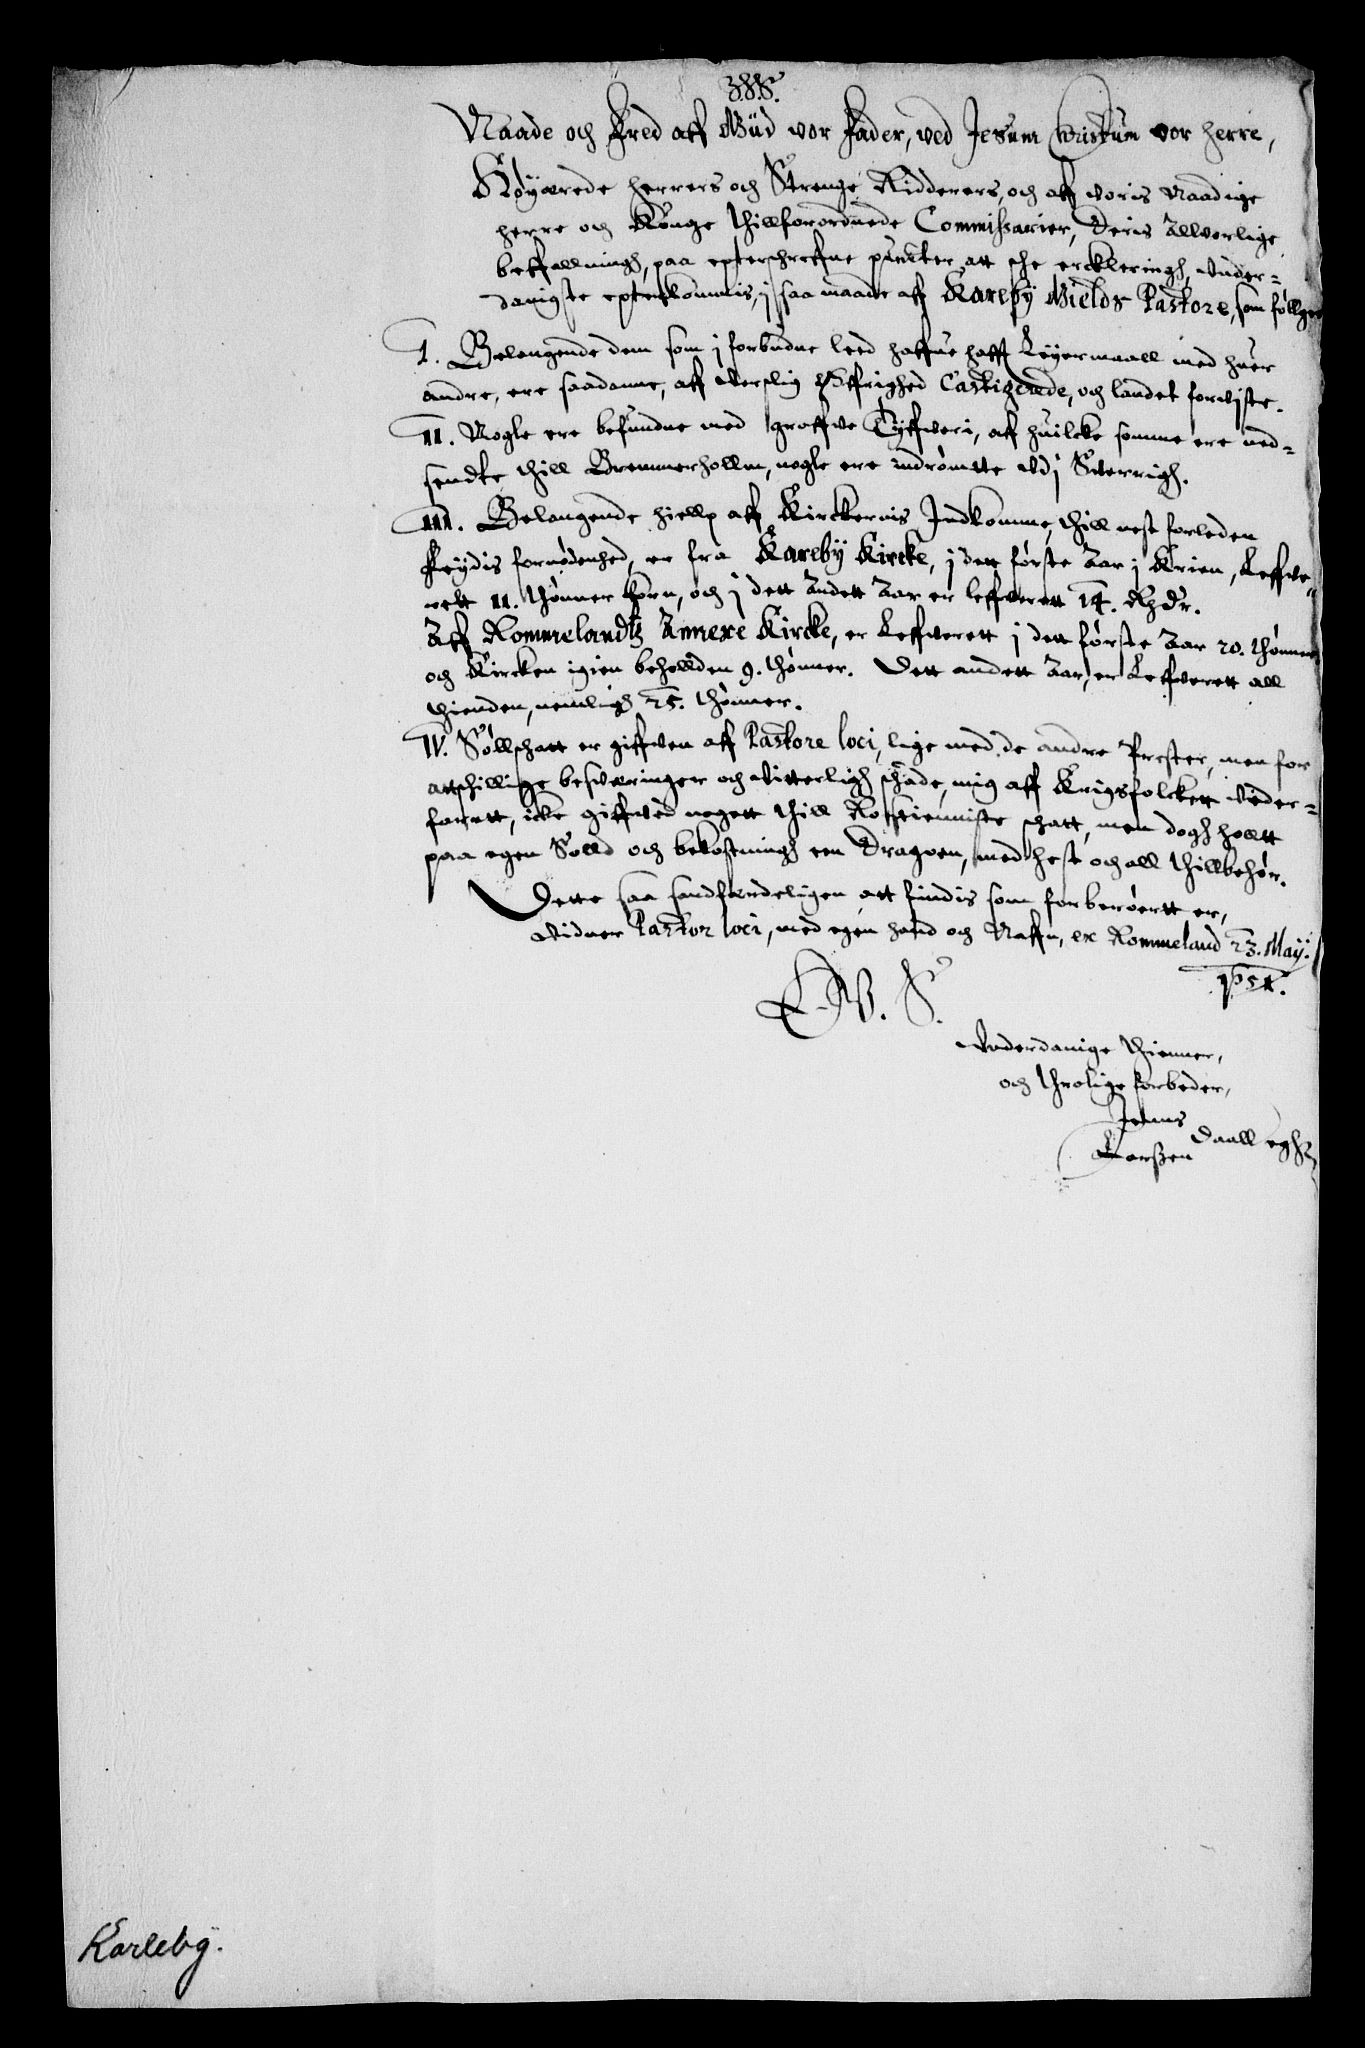 Naade och Fred aff Gud vor Fader, ved Jesum Christum vor herre,
Høyærede herrers och Strenge Ridderers, och aff voris Naadige
herre och Konge thillforordnede Commissarier, Deris Allvorlige
befallningh, paa epterschreffne puncter att sche erckleringh, vnder-
danigste epterkommis, j saa maade aff Kareby Gields Pastore, som føllger
I. Belangende dem som j forbudne leed haffue hafft Leyermaall med huer
andre, ere saadanne, aff verslig Øffrighed Castigerede, och landet forviste.
II. Nogle ere befundne med groffve Tyffveri, aff huilcke somme ere ned-
sendte thill Bremmerhollm, nogle ere indrømtte vdj Sverrigh.
III. Belangende hielp aff Kirckernis Indkomme, thill nest forleden
ffeydis fornødenhed, er fra Kareby Kircke, j dett første Aar j Krien, Leffve-
rett 11. thønner korn, och j dett Andett Aar er leffverett 14. Rhdr.
Aff Rommelandtz Annexe Kircke, er Leffverett j dett første Aar 20. thønner
och Kircken igien behollden 9. thønner. Dett andett Aar, er Leffverett all
thienden, nemligh 25. thønner.
IV. Søllschatt er giffven aff Pastore loci, lige med de andre Prester, men for
attschillige besværinger och vitterligh schade, mig aff Krigsfolckett veder-
farett, icke giffved nogett thill Rostienniste schatt, men dogh hollt
paa egen Solld och bekostningh een Dragoen, med hest och all thillbehør.
Dette saa sandfærdeligen att findis som forberøertt er,
vidner Pastor loci, med egen hand och Naffn, ex Rommeland 23. Maÿ.
E. G. S.
Vnderdanige thienner,
och throlige forbeder,
Jenns
Larßen Daall egh
Karleby.